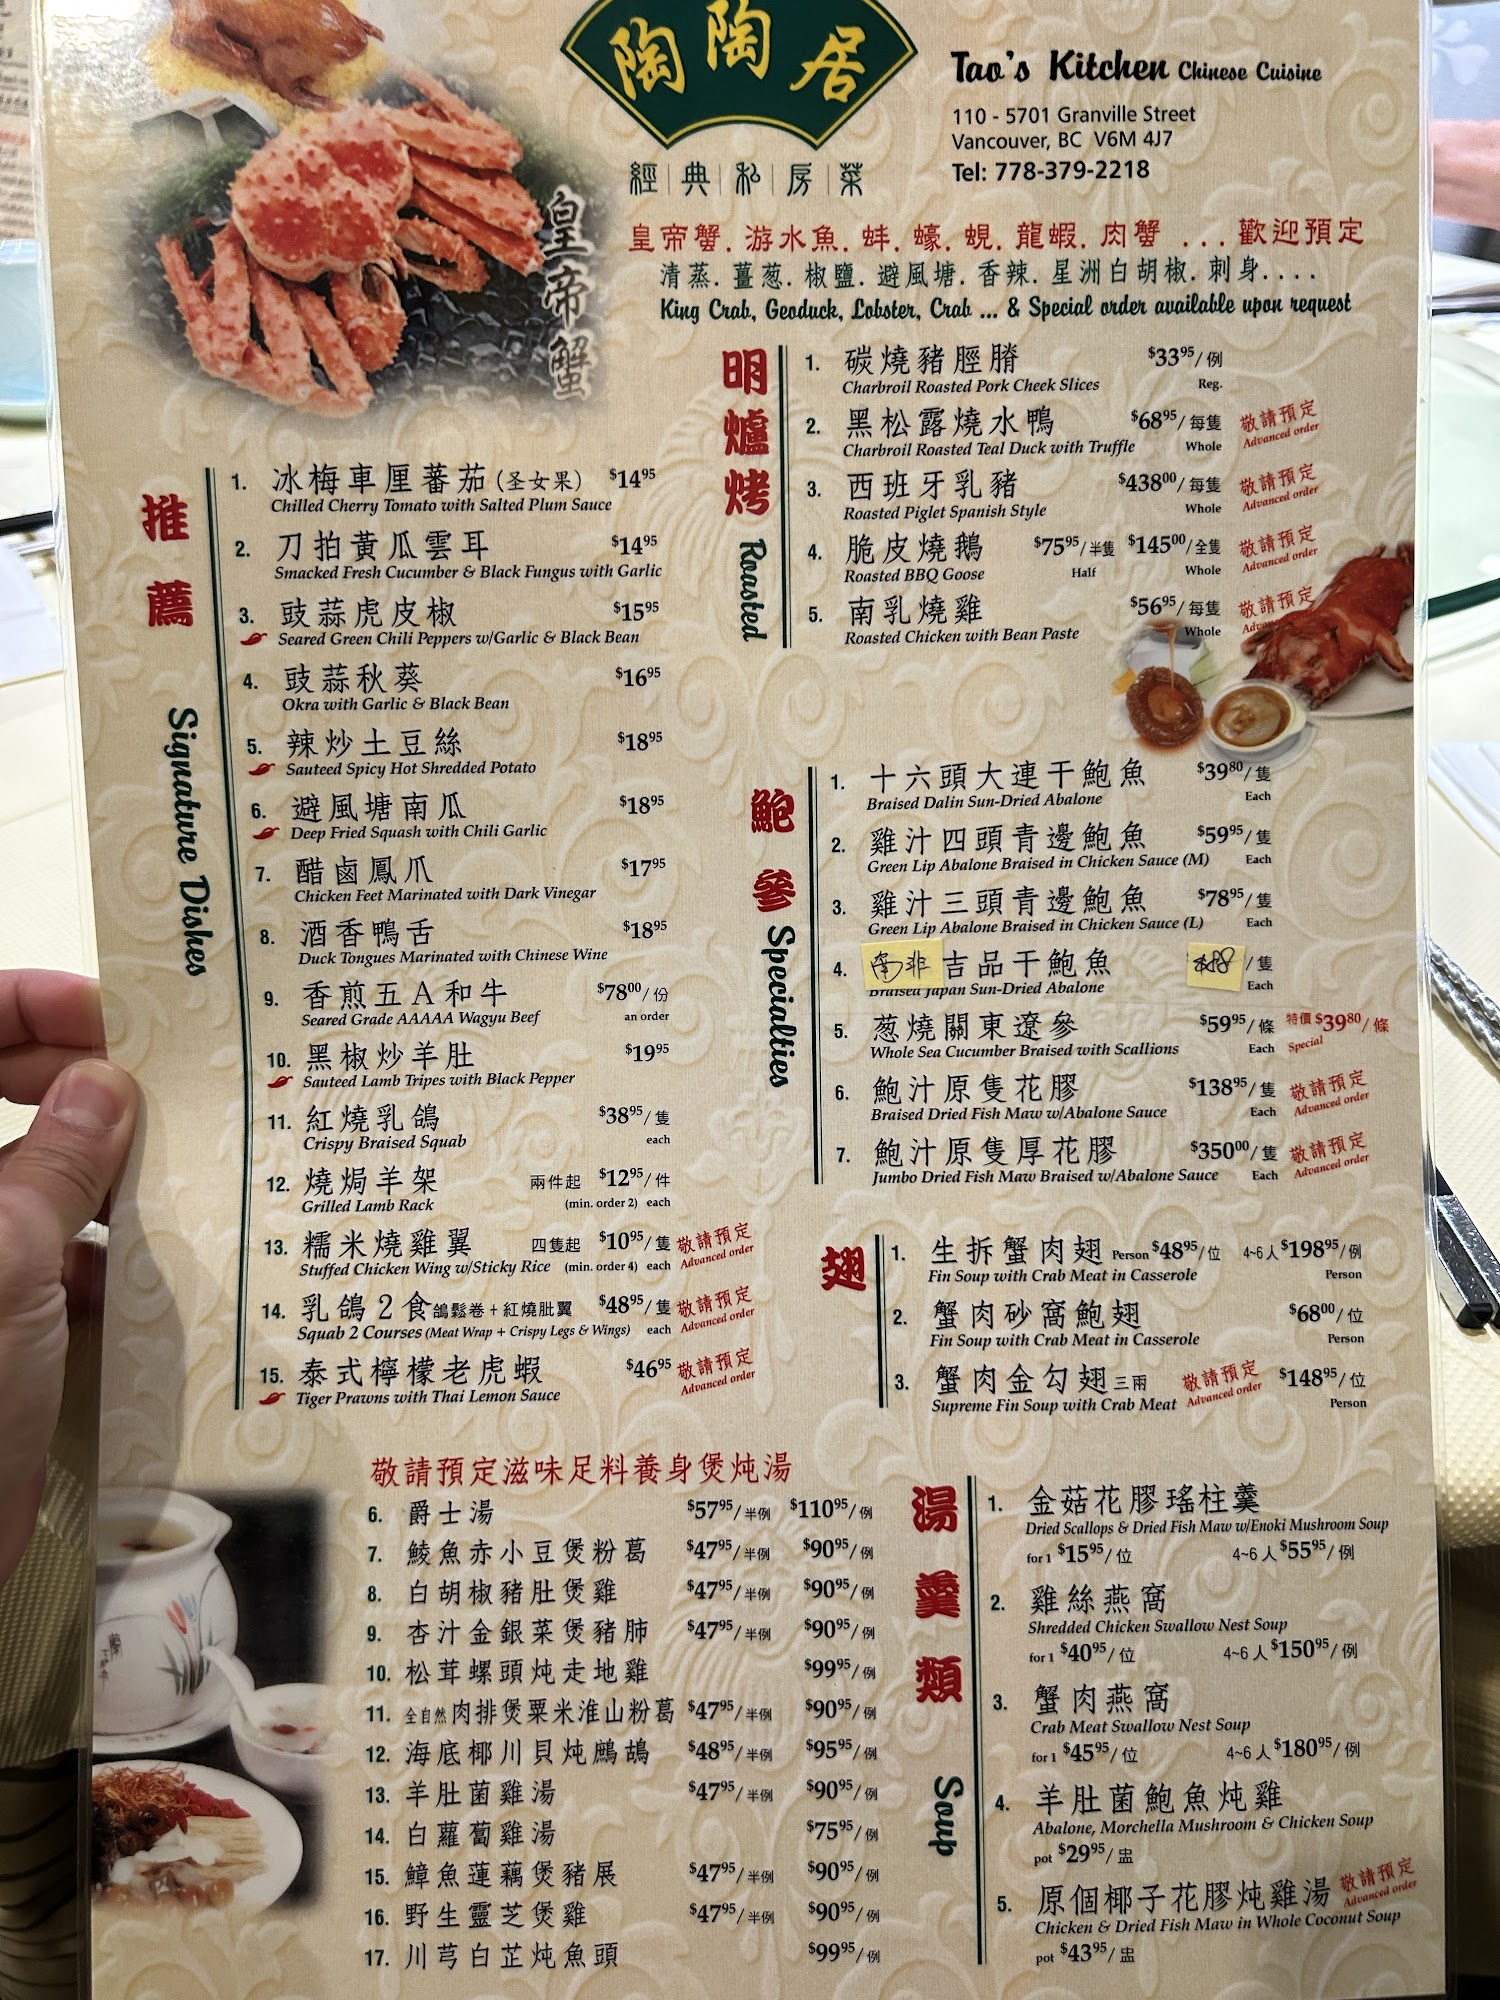 陶陶居
經|典|私|房|菜
Tao's Kitchen Chinese Cuisine
110 - 5701 Granville Street
Vancouver, BC V6M 4J7
Tel: 778-379-2218
皇帝蟹
皇帝蟹. 游水魚. 蚌. 蠔. 蜆. 龍蝦. 肉蟹 ... 歡迎預定
清蒸. 薑葱. 椒鹽. 避風塘. 香辣. 星洲白胡椒. 刺身....
King Crab, Geoduck, Lobster, Crab ... & Special order available upon request
推薦
Signature Dishes
1. 冰梅車厘蕃茄 (圣女果) $14.95
Chilled Cherry Tomato with Salted Plum Sauce
2. 刀拍黃瓜雲耳 $14.95
Smacked Fresh Cucumber & Black Fungus with Garlic
3. 豉蒜虎皮椒 $15.95
Seared Green Chili Peppers w/Garlic & Black Bean
4. 豉蒜秋葵 $16.95
Okra with Garlic & Black Bean
5. 辣炒土豆絲 $18.95
Sauteed Spicy Hot Shredded Potato
6. 避風塘南瓜 $18.95
Deep Fried Squash with Chili Garlic
7. 醋鹵鳳爪 $17.95
Chicken Feet Marinated with Dark Vinegar
8. 酒香鴨舌 $18.95
Duck Tongues Marinated with Chinese Wine
9. 香煎五A和牛 $78.00/份
Seared Grade AAAAA Wagyu Beef an order
10. 黑椒炒羊肚 $19.95
Sauteed Lamb Tripes with Black Pepper
11. 紅燒乳鴿 $38.95/隻
Crispy Braised Squab each
12. 燒焗羊架 兩件起 $12.95/件
Grilled Lamb Rack (min. order 2) each
13. 糯米燒雞翼 四隻起 $10.95/隻 敬請預定
Stuffed Chicken Wing w/Sticky Rice (min. order 4) each Advanced order
14. 乳鴿2食鴿鬆卷+紅燒肶翼 $48.95/隻 敬請預定
Squab 2 Courses (Meat Wrap + Crispy Legs & Wings) each Advanced order
15. 泰式檸檬老虎蝦 $46.95 敬請預定
Tiger Prawns with Thai Lemon Sauce Advanced order
明爐烤
Roasted
1. 碳燒豬脛臍 $33.95/例
Charbroil Roasted Pork Cheek Slices Reg.
2. 黑松露燒水鴨 $68.95/每隻 敬請預定
Charbroil Roasted Teal Duck with Truffle Whole Advanced order
3. 西班牙乳豬 $438.00/每隻 敬請預定
Roasted Piglet Spanish Style Whole Advanced order
4. 脆皮燒鵝 $75.95/半隻 $145.00/全隻 敬請預定
Roasted BBQ Goose Half Whole Advanced order
5. 南乳燒雞 $56.95/每隻 敬請預定
Roasted Chicken with Bean Paste Whole
鮑參
Specialties
1. 十六頭大連干鮑魚 $39.80/隻
Braised Dalin Sun-Dried Abalone Each
2. 雞汁四頭青邊鮑魚 $59.95/隻
Green Lip Abalone Braised in Chicken Sauce (M) Each
3. 雞汁三頭青邊鮑魚 $78.95/隻
Green Lip Abalone Braised in Chicken Sauce (L) Each
4. 南非吉品干鮑魚 /隻
Braised Japan Sun-Dried Abalone Each
5. 葱燒關東遼參 $59.95/條 特價 $39.80/條
Whole Sea Cucumber Braised with Scallions Each Special
6. 鮑汁原隻花膠 $138.95/隻 敬請預定
Braised Dried Fish Maw w/Abalone Sauce Each Advanced order
7. 鮑汁原隻厚花膠 $350.00/隻 敬請預定
Jumbo Dried Fish Maw Braised w/Abalone Sauce Each Advanced order
翅
1. 生拆蟹肉翅 Person $48.95/位 4~6人 $198.95/例
Fin Soup with Crab Meat in Casserole Person
2. 蟹肉砂窩鮑翅 $68.00/位
Fin Soup with Crab Meat in Casserole Person
3. 蟹肉金勾翅三兩 敬請預定 $148.95/位
Supreme Fin Soup with Crab Meat Advanced order Person
敬請預定滋味足料養身煲炖湯
6. 爵士湯 $57.95/半例 $110.95/例
7. 鯪魚赤小豆煲粉葛 $47.95/半例 $90.95/例
8. 白胡椒豬肚煲雞 $47.95/半例 $90.95/例
9. 杏汁金銀菜煲豬肺 $47.95/半例 $90.95/例
10. 松茸螺頭炖走地雞 $99.95/例
11. 全自然肉排煲粟米淮山粉葛 $47.95/半例 $90.95/例
12. 海底椰川貝炖鷓鴣 $48.95/半例 $95.95/例
13. 羊肚菌雞湯 $47.95/半例 $90.95/例
14. 白蘿蔔雞湯 $75.95/例
15. 鱆魚蓮藕煲豬展 $47.95/半例 $90.95/例
16. 野生靈芝煲雞 $47.95/半例 $90.95/例
17. 川芎白芷炖魚頭 $99.95/例
湯羹類
Soup
1. 金菇花膠瑤柱羹
Dried Scallops & Dried Fish Maw w/Enoki Mushroom Soup
for 1 $15.95/位 4~6人 $55.95/例
2. 雞絲燕窩
Shredded Chicken Swallow Nest Soup
for 1 $40.95/位 4~6人 $150.95/例
3. 蟹肉燕窩
Crab Meat Swallow Nest Soup
for 1 $45.95/位 4~6人 $180.95/例
4. 羊肚菌鮑魚炖雞
Abalone, Morchella Mushroom & Chicken Soup
pot $29.95/盅
5. 原個椰子花膠炖雞湯 敬請預定
Chicken & Dried Fish Maw in Whole Coconut Soup Advanced order
pot $43.95/盅